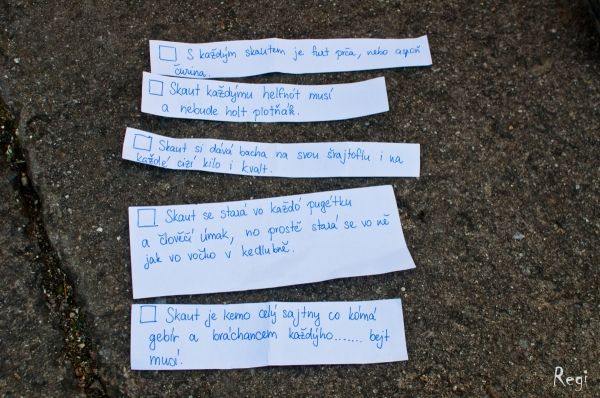 S každým skautem je furt prča, nebo aspoň
čurina.
Skaut každýmu helfnót musí
a nebude holt plotňák.
Skaut si dává bacha na svou šrajtoflu i na
každé cizí kilo i kvalt.
Skaut se stará vo každó pugétku
a člověčí úmak, no prostě stará se vo ně
jak vo vočko v kedlubně.
Skaut je kemo celý sajtny co kómá
gebír a bráchancem každýho....... bejt
musí.
Regi